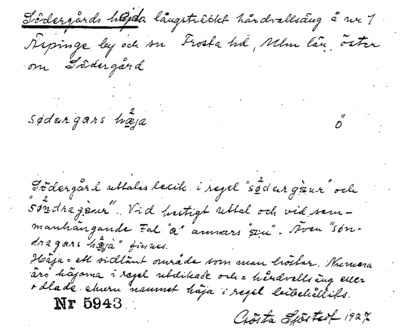 Södergårds höjda långsträckt hårdvallsäng å nr 1
Äspinge by och sn Frosta hd, Mlm län, öster
om Södergård
södergars höja ö
Södergård uttalas lexik. i regel "södergaur" och
"söndragaur". Vid hastigt uttal och vid sam-
manhängande tal "a" annars "au". Även "søn-
dragars höja" finnes.
Höja = ett sidlänt område som man höstar. Numera
äro höjorna i regel utdikade och = hårdvallsäng eller
odlade, ehuru namnet höja i regel bibehållits.
Nr 5943
Gösta Sjöstedt 1927